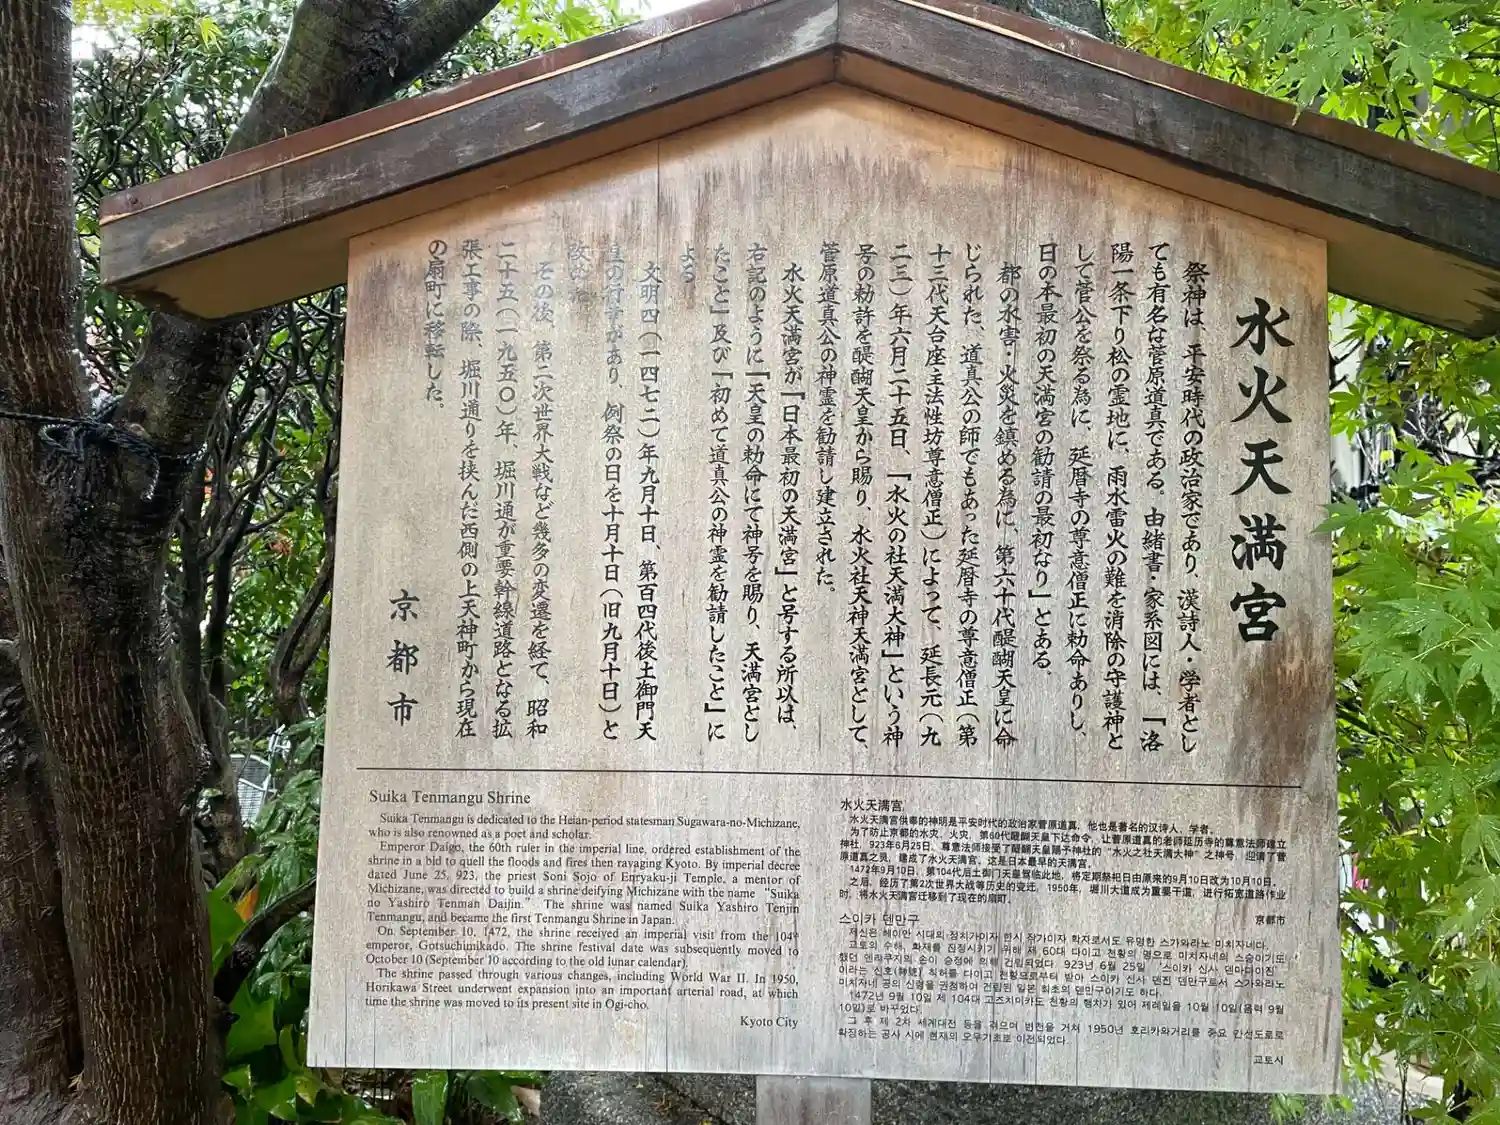 水火天満宮
祭神は、平安時代の政治家であり、漢詩人・学者とし
ても有名な菅原道真である。由緒書・家系図には、「洛
陽一条下り松の霊地に、雨水雷火の難を消除の守護神と
して菅公を祭る為に、延暦寺の尊意僧正に勅命ありし、
日の本最初の天満宮の勧請の最初なり」とある。
都の水害・火災を鎮める為に、第六十代醍醐天皇に命
じられた、道真公の師でもあった延暦寺の尊意僧正(第
十三代天台座主法性坊尊意僧正)によって、延長元(九
二三)年六月二十五日、「水火の社天満大神」という神
号の勅許を醍醐天皇から賜り、水火社天神天満宮として、
菅原道真公の神霊を勧請し建立された。
水火天満宮が「日本最初の天満宮」と号する所以は、
右記のように「天皇の勅命にて神号を賜り、天満宮とし
たこと」及び「初めて道真公の神霊を勧請したこと」に
よる
文明四(一四七二)年九月十日、第百四代後土御門天
皇の行幸があり、例祭の日を十月十日(旧九月十日)と
改めた
その後、第二次世界大戦など幾多の変遷を経て、昭和
二十五(一九五〇)年、堀川通が重要幹線道路となる拡
張工事の際、堀川通りを挟んだ西側の上天神町から現在
の扇町に移転した。
京都市
Suika Tenmangu Shrine
Suika Tenmangu is dedicated to the Heian-period statesman Sugawara-no-Michizane,
who is also renowned as a poet and scholar.
Emperor Daigo, the 60th ruler in the imperial line, ordered establishment of the
shrine in a bid to quell the floods and fires then ravaging Kyoto. By imperial decree
dated June 25, 923, the priest Soni Sojo of Enryaku-ji Temple, a mentor of
Michizane, was directed to build a shrine deifying Michizane with the name "Suika
no Yashiro Tenman Daijin." The shrine was named Suika Yashiro Tenjin
Tenmangu, and became the first Tenmangu Shrine in Japan.
On September 10, 1472, the shrine received an imperial visit from the 104th
emperor, Gotsuchimikado. The shrine festival date was subsequently moved to
October 10 (September 10 according to the old lunar calendar).
The shrine passed through various changes, including World War II. In 1950,
Horikawa Street underwent expansion into an important arterial road, at which
time the shrine was moved to its present site in Ogi-cho.
Kyoto City
水火天满宫
水火天满宫供奉的神明是平安时代的政治家菅原道真，他也是著名的汉诗人、学者。
为了防止京都的水灾、火灾，第60代醍醐天皇下达命令，让菅原道真的老师延历寺的尊意法师建立
神社，923年6月25日，尊意法师接受了醍醐天皇赐予神社的“水火之社天满大神”之神号，迎请了菅
原道真之灵，建成了水火天满宫。这是日本最早的天满宫。
1472年9月10日，第104代后土御门天皇驾临此地，将定期祭祀日由原来的9月10日改为10月10日。
之后，经历了第2次世界大战等历史的变迁，1950年，堀川大道成为重要干道，进行拓宽道路作业
时，将水火天满宫迁移到了现在的扇町。
京都市
스이카 덴만구
제신은 헤이안 시대의 정치가이자 한시 작가이자 학자로서도 유명한 스가와라노 미치자네다.
교토의 수해, 화재를 진정시키기 위해 제 60대 다이고 천황의 명으로 미치자네의 스승이기도
했던 엔랴쿠지의 손이 승정에 의해 건립되었다. 923년 6월 25일 '스이카 신사 덴마다이진'
이라는 신호(神號) 칙허를 다이고 천황으로부터 받아 스이카 신사 덴진 덴만구로서 스가와라노
미치자네 공의 신령을 권청하여 건립된 일본 최초의 덴만구이기도 하다.
1472년 9월 10일 제 104대 고츠치미카도 천황의 행차가 있어 제례일을 10월 10일(음력 9월
10일)로 바꾸었다.
그 후 제 2차 세계대전 등을 겪으며 변천을 거쳐 1950년 호리카와거리를 중요 간선도로로
확장하는 공사 시에 현재의 오우기초로 이전되었다.
교토시